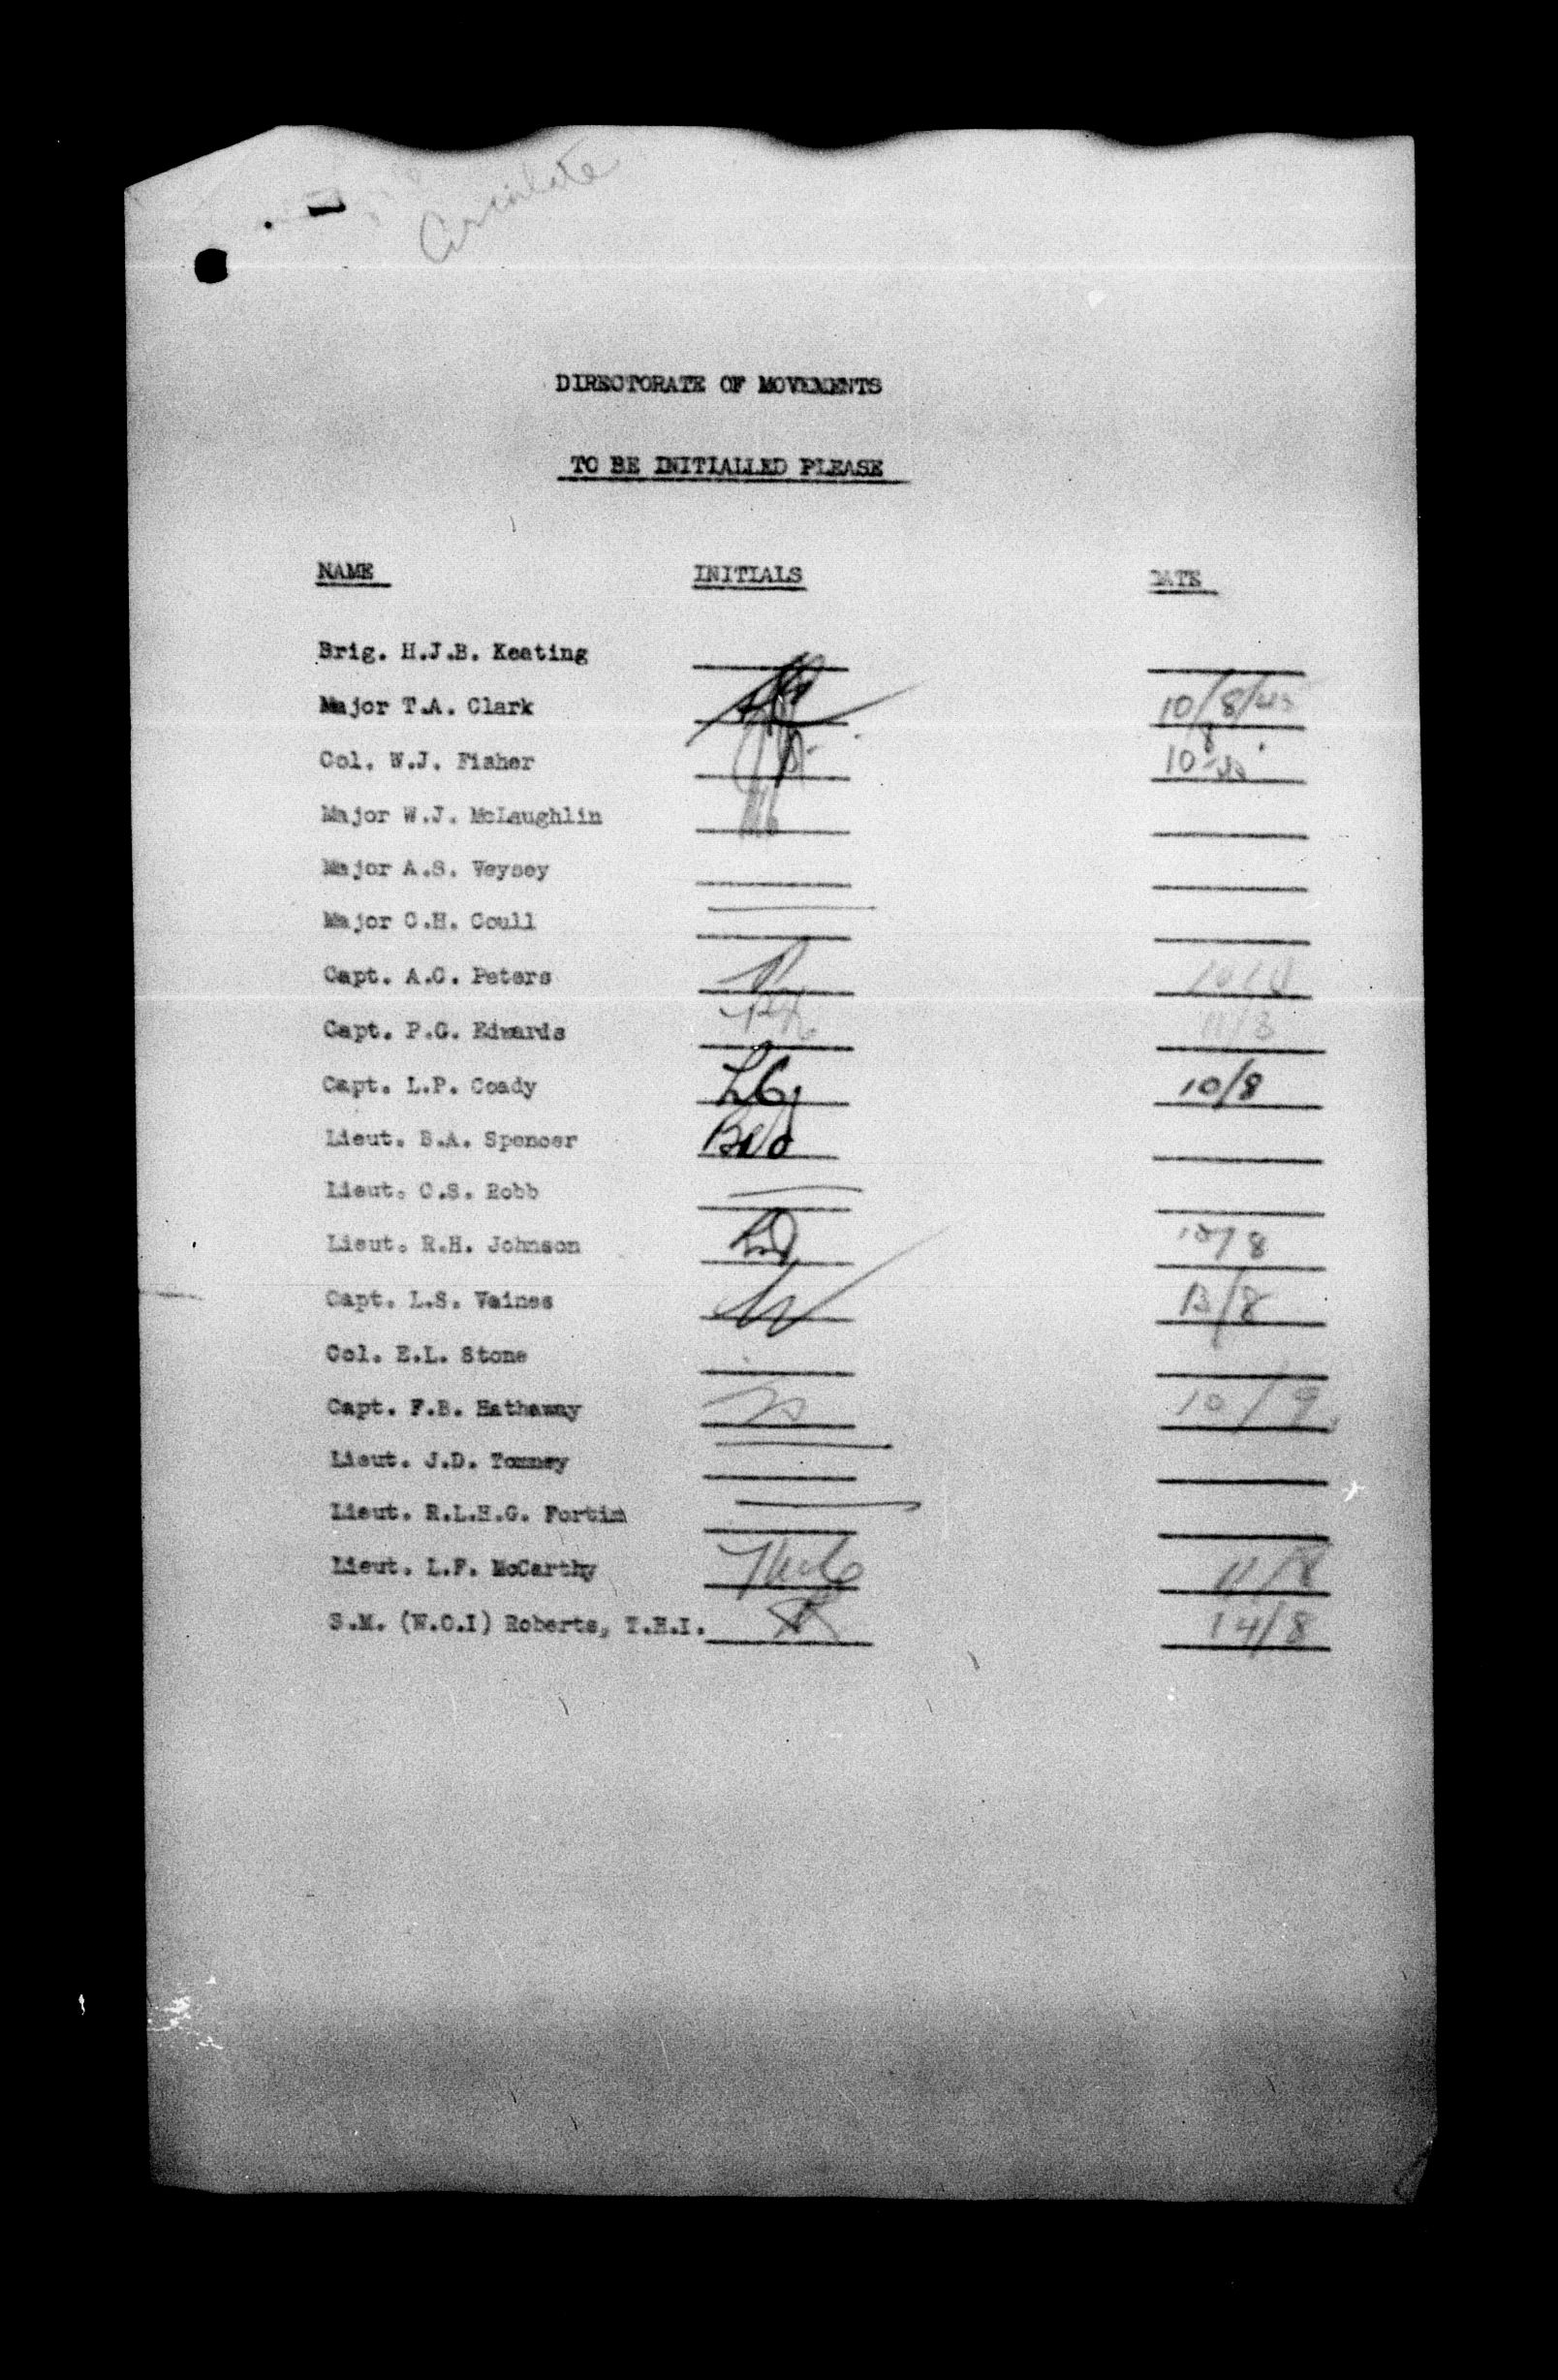 Circulate
DIRECTORATE OF MOVEMENTS
TO BE INITIALLED PLEASE
NAME INITIALS DATE
Brig. H.J.B. Keating
Major T.A. Clark 10/8/45
Col. W.J. Fisher 10
Major W.J. McLaughlin
Major A.S. Veysey
Major C.H. Coull
Capt. A.C. Peters
Capt. P.G. Edwards
Capt. L.P. Coady 10/8
Lieut. B.A. Spencer
Lieut. C.S. Robb
Lieut. R.H. Johnson 10/8
Capt. L.S. Vaines 13/8
Col. E.L. Stone
Capt. F.B. Hathaway 10/9
Lieut. J.D. Tommey
Lieut. R.L.H.G. Fortim
Lieut. L.F. McCarthy 11/8
S.M. (W.O.I) Roberts, T.H.I. 14/8